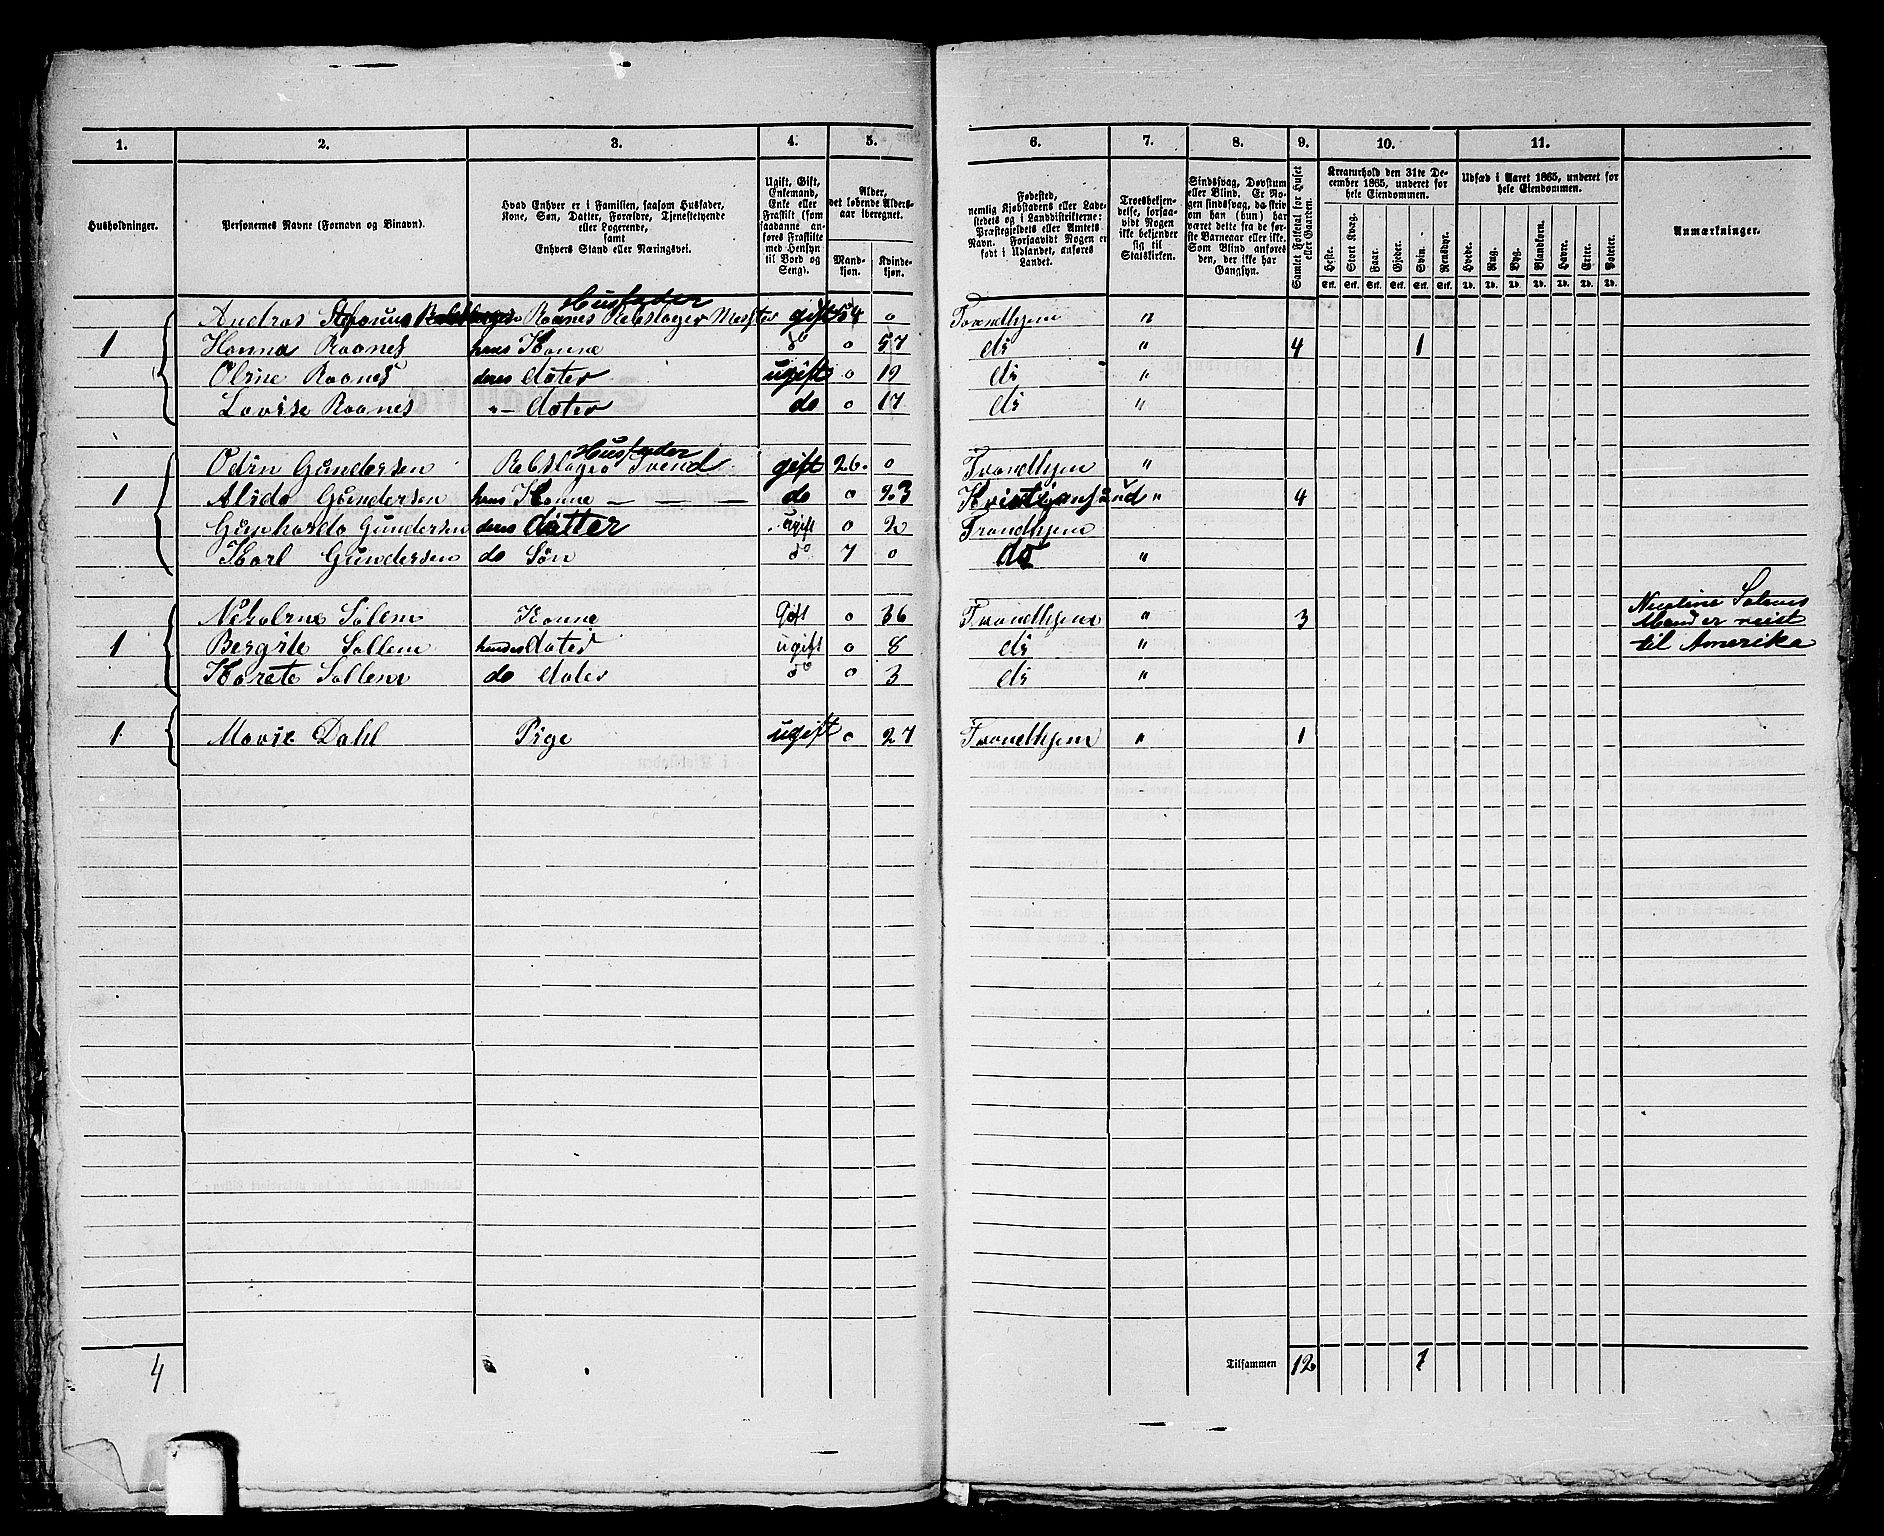 1. 2. 3. 4. 5. 6. 7. 8. 9. 10. 11.
Husholdninger.
Personernes Navne (Fornavn og Binavn).
Hvad Enhver er i Familien, saasom Husfader,
Kone, Søn, Datter, Forældre, Tjenestetyende
eller Logerende,
samt
Enhvers Stand eller Næringsvei.
Ugift, Gift,
Enkemand,
Enke eller
Fraskilt (som
saadanne an-
føres Fraskilte
med Hensyn
til Bord og
Seng).
Alder,
det løbende Alders-
aar iberegnet.
Mand-
kjøn.
Kvinde-
kjøn.
Fødested,
nemlig Kjøbstadens eller Lade-
stedets og i Landdistrikterne:
Præstegjeldets eller Amtets
Navn. Forsaavidt Nogen er
født i Udlandet, anføres
Landet.
Troesbekjen-
delse, forsaa-
vidt Nogen
ikke bekjender
sig til
Statskirken.
Sindssvag, Døvstum
eller Blind. Er No-
gen sindssvag, da skriv
om han (hun) har
været dette fra de før-
ste Barneaar eller ikke.
Som Blind anføres
den, der ikke har
Gangsyn.
Samlet Folketal for Huset
eller Gaarden.
Kreaturhold den 31te De-
cember 1865, underet for
hele Eiendommen.
Heste. Stort Kvæg. Faar. Gjeder. Svin. Rensdyr.
Stk. Stk. Stk. Stk. Stk. Stk.
Udsæd i Aaret 1865, underet for
hele Eiendommen.
Hvede. Rug. Byg. Blandkorn. Havre. Erter. Poteter.
Td. Td. Td. Td. Td. Td. Td.
Anmærkninger.
Husfader
Andras Stefanus Raanes Rebslager Mester gift 54 0 Trondhjem "
1 Hanna Raanes hans Konne do 0 57 do " 4 1
Oline Raanes deres dater ugift 0 19 do "
Lovise Raanes "- dater do 0 17 do "
Husfader
Odin Gundersen Rebslager Svend gift 26 0 Trondhjem "
1 Alida Gundersen hans Konne - - - do 0 23 Kristiansund " 4
Gunharda Gundersen deres datter ugift 0 2 Trondhjem
Karl Gundersen do Søn do 7 0 do "
Nekoline Solem Konne Gift 0 36 Trondhjem " 3 Nicoline Solems
1 Bergite Sollem hendes dater ugift 0 8 do " Mand er reist
til Amerika
Karete Sollem do dater do 0 3 do "
1 Marie Dahl Pige ugift 0 27 Trondhjem " 1
4 Tilsammen 12 1